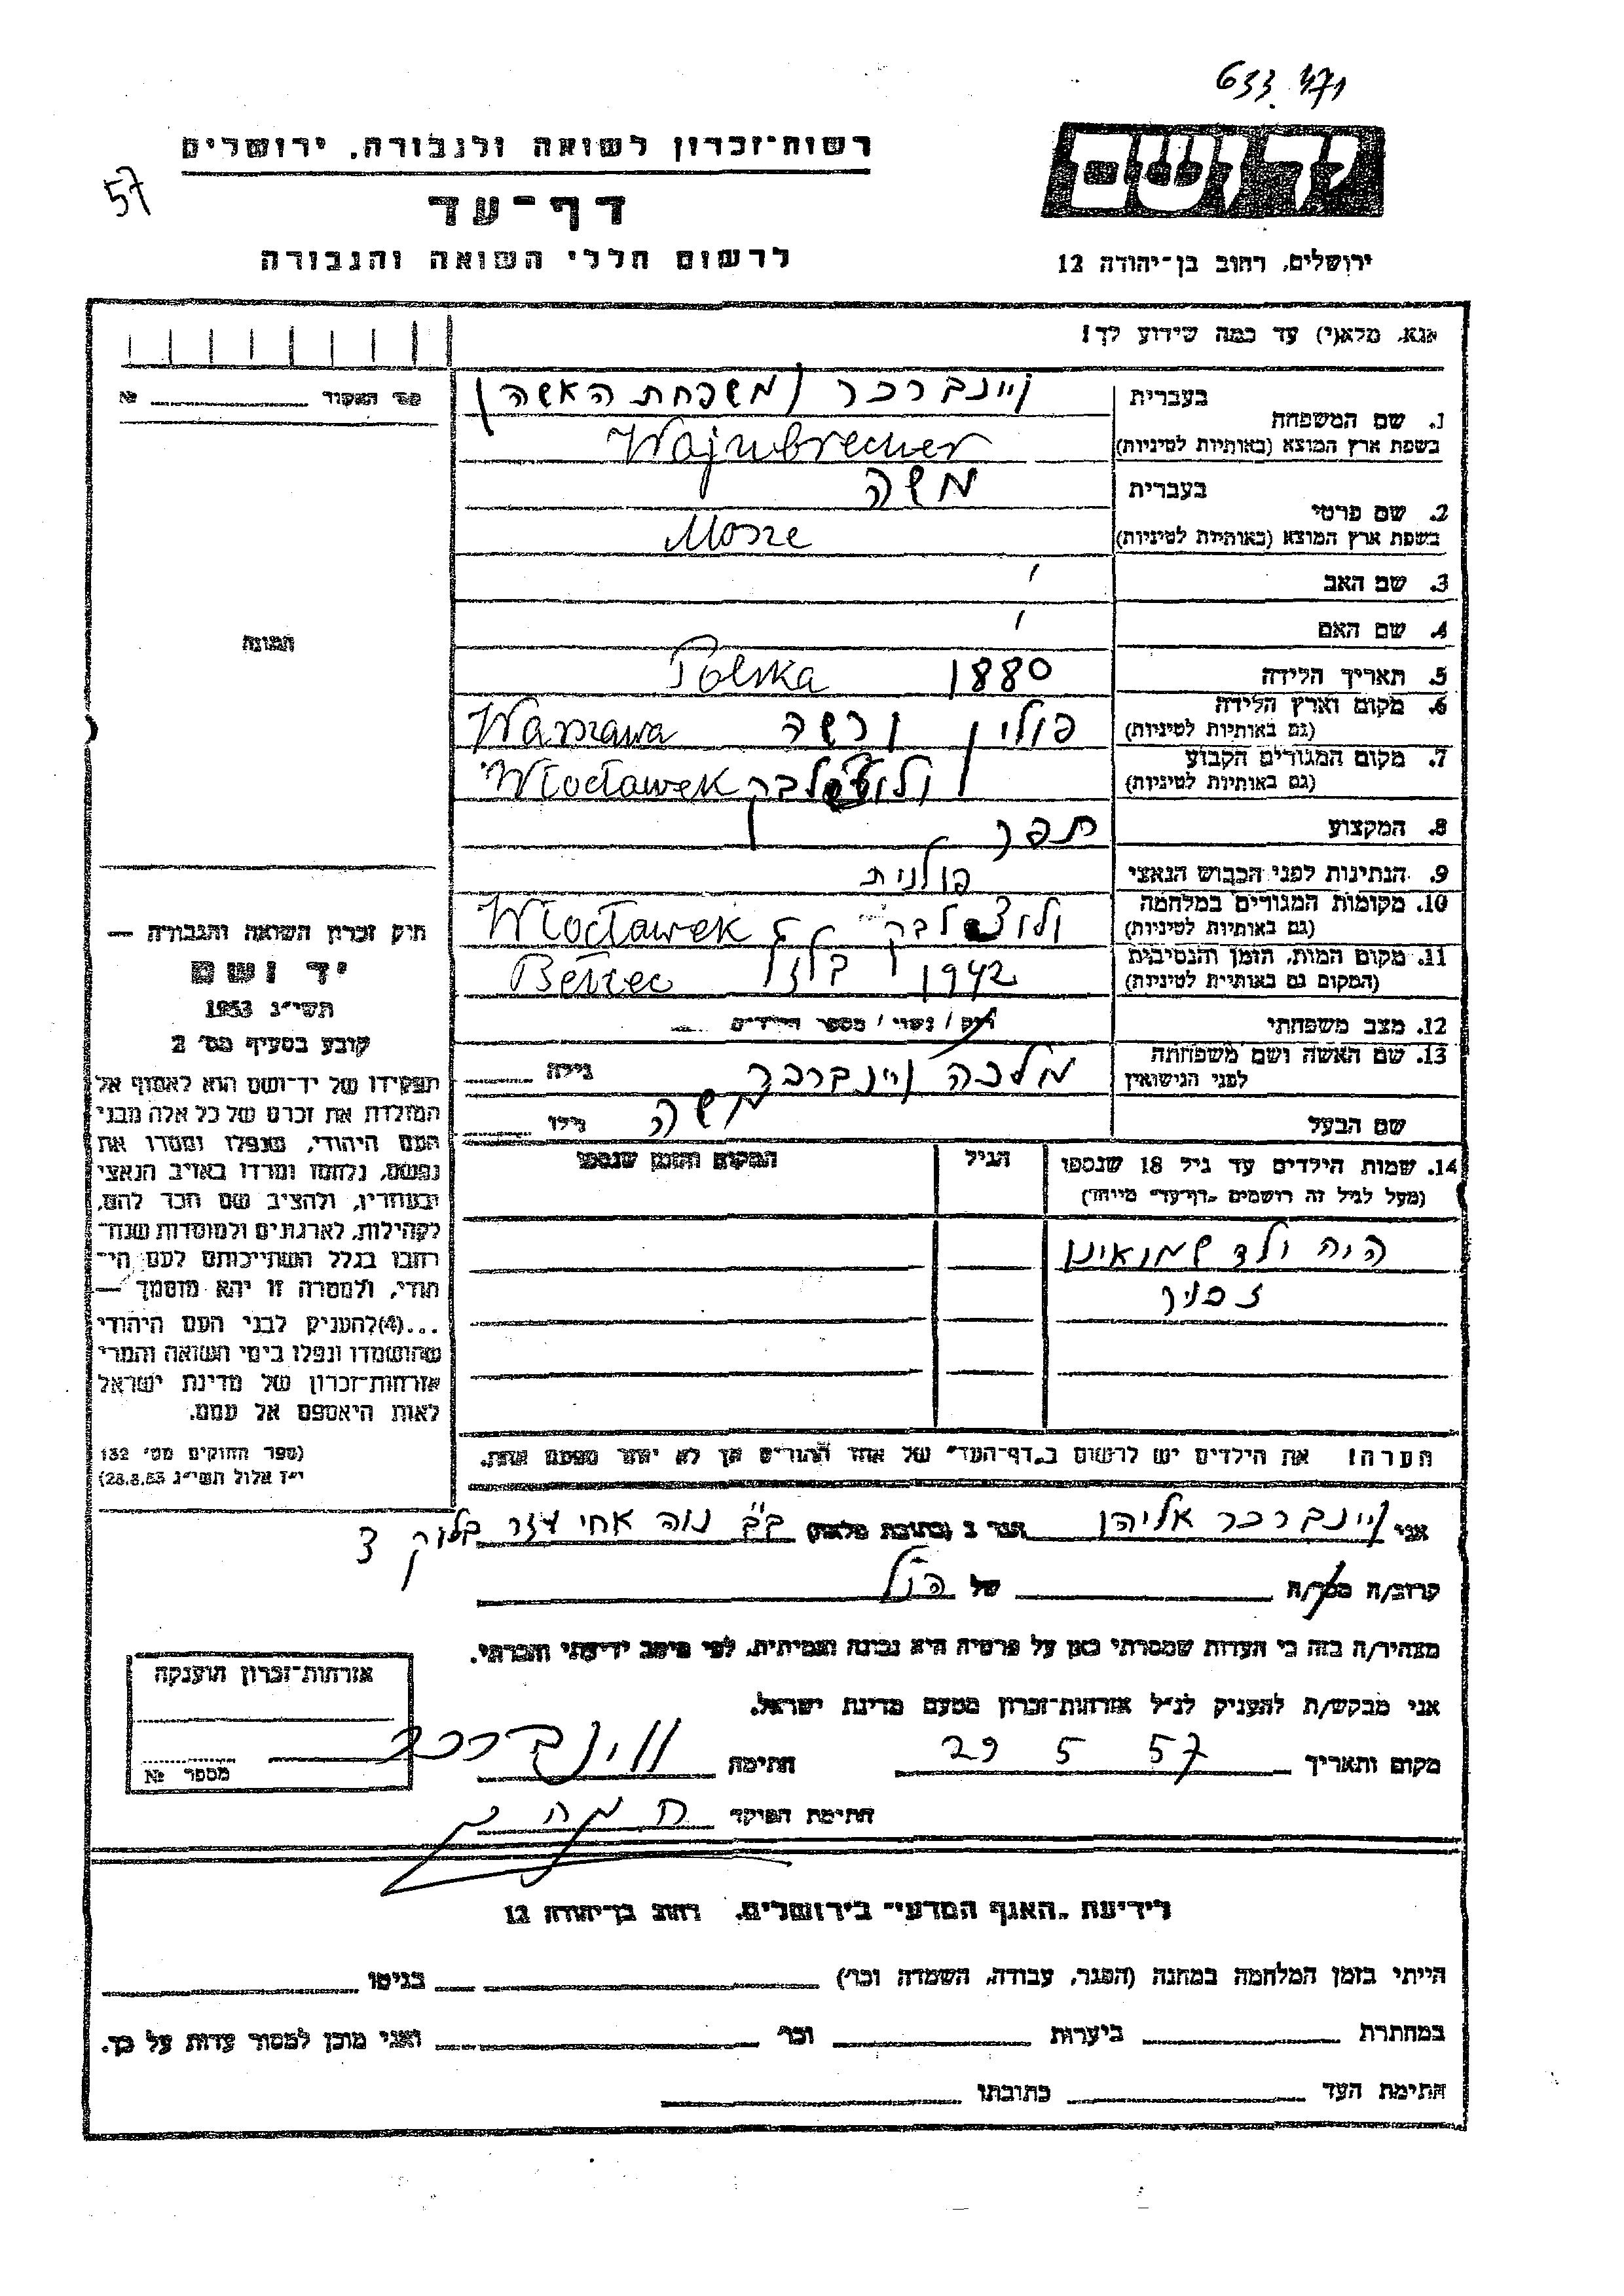 633.471
רשות־זכרון לשואה ולגבורה, ירושלים
57
דף־עד
לרשום חללי השואה והגבורה
יד ושם
ירושלים, רחוב בן־יהודה 12
אנא, מלא(י) עד כמה שידוע לך!
מס' התיקוד № ____
1. שם המשפחה
בעברית
ויינברכר (משפחת האשה)
בשפת ארץ המוצא (באותיות לטיניות)
Wajnbrecher
2. שם פרטי
בעברית
משה
בשפת ארץ המוצא (באותיות לטיניות)
Mosze
3. שם האב
4. שם האם
5. תאריך הלידה
1880 Polska
6. מקום וארץ הלידה
(גם באותיות לטיניות)
פולין ורשה Warszawa
7. מקום המגורים הקבוע
(גם באותיות לטיניות)
ולוצלבק Włocławek
8. המקצוע
תפר
9. הנתינות לפני הכבוש הנאצי
פולנית
10. מקומות המגורים במלחמה
(גם באותיות לטיניות)
ולוצלבק Włocławek
11. מקום המות, הזמן והנסיבות
(המקום גם באותיות לטיניות)
1942 בלזץ Bełżec
12. מצב משפחתי
רוק / נשוי / מספר הילדים
13. שם האשה ושם משפחתה
לפני הנישואין
מלכה ויינברכר
גילה
שם הבעל
משה
גילו
14. שמות הילדים עד גיל 18 שנספו
(מעל לגיל זה רושמים "דף־עד" מיוחד)
הגיל
המקום והזמן שנספו
היה ילד שמואינן
זכור
הערה! את הילדים יש לרשום ב"דף־העד" של אחד ההורים אך לא יותר מפעם אחת.
התמונה
חוק זכרון השואה והגבורה —
יד ושם
תשי"ג 1953
קובע בסעיף מס' 2
תפקידו של יד־ושם הוא לאסוף אל
המולדת את זכרם של כל אלה מבני
העם היהודי, שנפלו ומסרו את
נפשם, נלחמו ומרדו באויב הנאצי
ובעוזריו, ולהציב שם וזכר להם,
לקהילות, לארגונים ולמוסדות שנח־
רחבו בגלל השתייכותם לעם הי־
הודי, ולמטרה זו יהא מוסמך —
...(4) להעניק לבני העם היהודי
שהושמדו ונפלו בימי השואה והמרי
אזרחות־זכרון של מדינת ישראל
לאות היאספם אל עמם.
(ספר החוקים מס' 132
י"ז אלול תשי"ג 28.8.53)
אני ויינברכר אליהו הגר ב (כתובת מלאה) ב"ב נוה אחי עזר בלוק 3
קרוב/ה מכר/ה ____ של הנ"ל
מצהיר/ה בזה כי העדות שמסרתי כאן על פרטיה היא נכונה ואמיתית, לפי מיטב ידיעתי והכרתי.
אני מבקש/ת להעניק לנ"ל אזרחות־זכרון מטעם מדינת ישראל.
מקום ותאריך 29 5 57 חתימה ויינברכר
חתימת הפוקד
אזרחות־זכרון הוענקה
מספר №
לידיעת "האגף המדעי" בירושלים, רחוב בן־יהודה 12
הייתי בזמן המלחמה במחנה (הסגר, עבודה, השמדה וכו') ____ בגיטו ____
במחתרת ____ ביערות ____ וכו' ____ ואני מוכן למסור עדות על כך.
חתימת העד ____ כתובתו ____